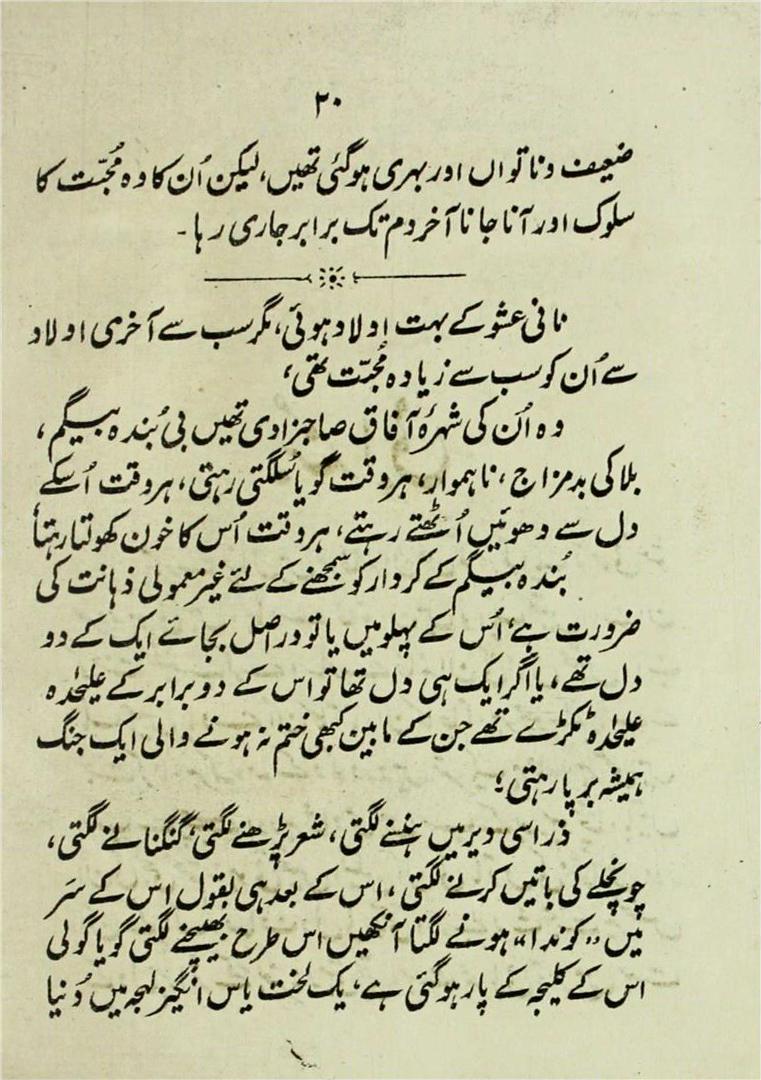 ۲۰
ضعیف و ناتواں اور بہری ہوگئی تھیں، لیکن اُن کا وہ مُحبّت کا
سلوک اور آنا جانا آخر دم تک برابر جاری رہا۔
نانی عشو کے بہت اولاد ہوئی، مگر سب سے آخری اولاد
سے اُن کو سب سے زیادہ مُحبّت تھی،
وہ اُن کی شہرۂ آفاق صاحبزادی تھیں بی بُندہ بیگم،
بلا کی بدمزاج، ناہموار، ہر وقت گویا سُلگتی رہتی، ہر وقت اُسکے
دل سے دھوئیں اُٹھتے رہتے، ہر وقت اُس کا خون کھولتا رہتا
بُندہ بیگم کے کردار کو سمجھنے کے لئے غیر معمولی ذہانت کی
ضرورت ہے، اُس کے پہلو میں یا تو دراصل بجائے ایک کے دو
دل تھے، یا اگر ایک ہی دل تھا تو اس کے دو برابر کے علیحٰدہ
علیحٰدہ ٹکڑے تھے جن کے مابین کبھی ختم نہ ہونے والی ایک جنگ
ہمیشہ برپا رہتی؛
ذرا سی دیر میں ہنسنے لگتی، شعر پڑھنے لگتی، گنگنانے لگتی،
چونچلے کی باتیں کرنے لگتی، اس کے بعد ہی بقول اس کے سَر
میں ,,کوندا،، ہونے لگتا آنکھیں اس طرح بھینچنے لگتی گویا گولی
اس کے کلیجہ کے پار ہوگئی ہے، یک لخت یاس انگیز لہجہ میں دُنیا